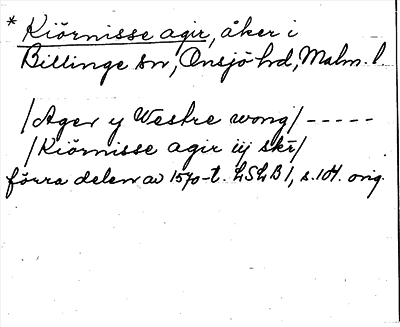 * Kiörnisse agir, åker i
Billinge sn, Onsjö hd, Malm. l.
/Ager y Westre wong/ - - - - -
/Kiörnisse agir iij skr̄/
förra delen av 1570-t. LSLB 1, s. 104. orig.